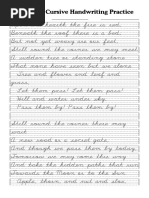 Cursive Handwriting Practice
the fire is red,
Beneath the roof there is a bed;
But not yet weary are our feet,
Still round the corner we may meet
A sudden tree or standing stone
That none have seen but we alone.
Tree and flower and leaf and
grass,
Let them pass! Let them pass!
Hill and water under sky,
Pass them by! Pass them by!
Still round the corner there may
wait
A new road or a secret gate,
And though we pass them by today,
Tomorrow we may come this way
And take the hidden paths that run
Towards the Moon or to the Sun.
Apple, thorn, and nut and sloe,